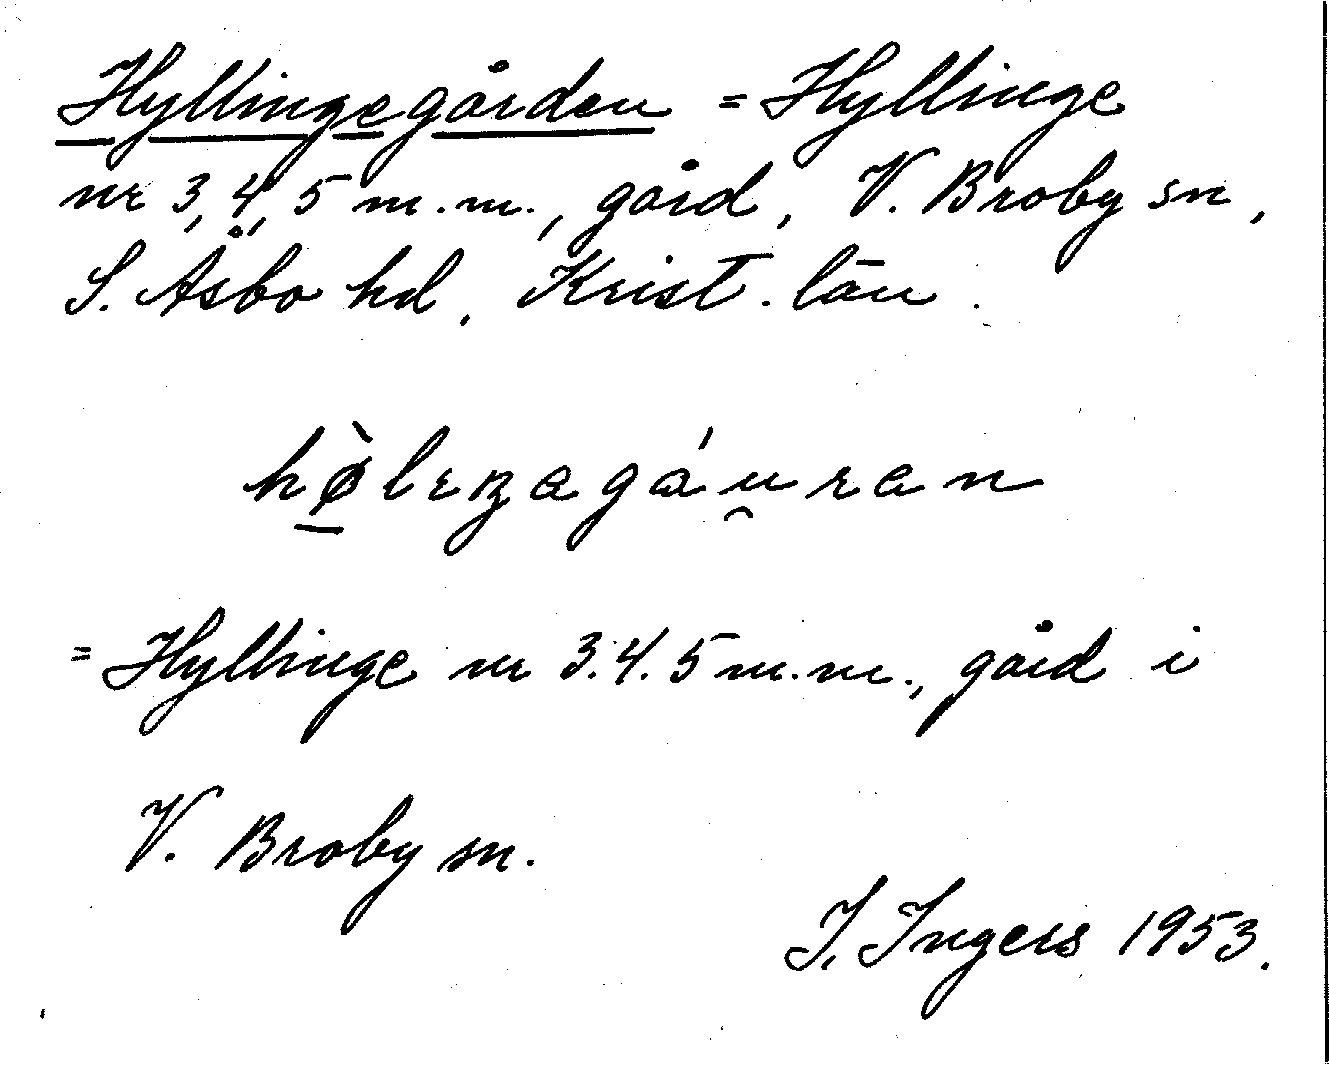 Hyllingegården = Hyllinge
nr 3, 4, 5 m.m., gård, V. Broby sn,
S. Åsbo hd, Krist. län.
= Hyllinge nr 3.4.5 m.m., gård i
V. Broby sn.
I. Ingers 1953.